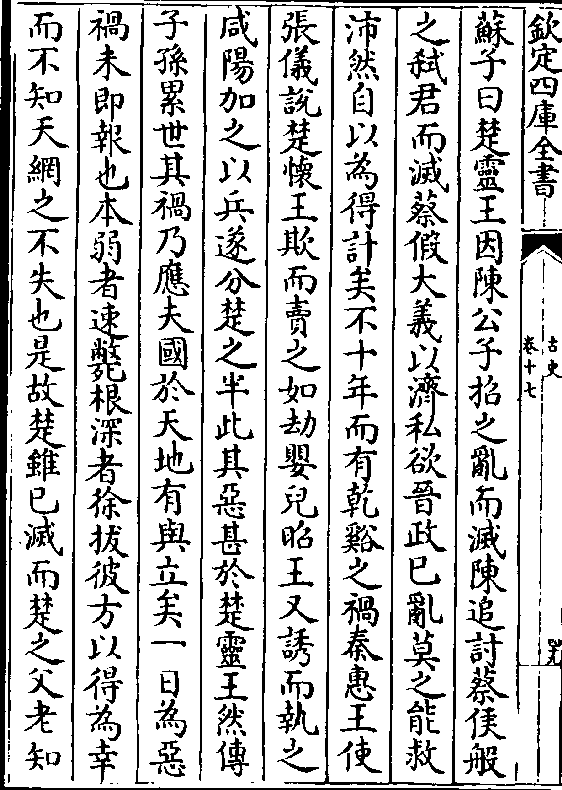 欽定四庫全書
古史
卷十七
蘇子曰楚靈王因陳公子招之亂而滅陳追討蔡侯般
之弑君而滅蔡假大義以濟私欲晉政已亂莫之能救
沛然自以為得計矣不十年而有乾谿之禍秦惠王使
張儀說楚懷王欺而賣之如劫嬰兒昭王又誘而執之
咸陽加之以兵遂分楚之半此其惡甚於楚靈王然傳
子孫累世其禍乃應夫國於天地有與立矣一日為惡
禍未即報也本弱者速斃根深者徐拔彼方以得為幸
而不知天網之不失也是故楚雖已滅而楚之父老知